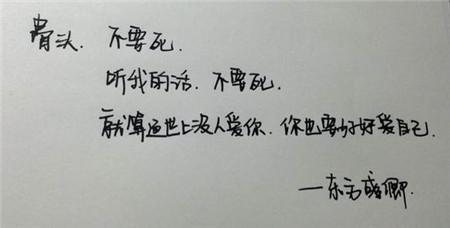 骨头. 不要死.
听我的话. 不要死.
就算这世上没人爱你. 你也要好好爱自己.
——东方盛卿.